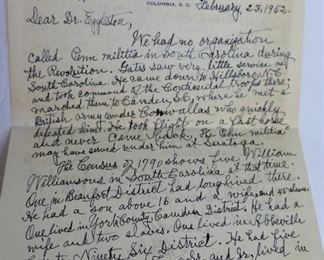 COLUMBIA, S. C.
February 23, 1952.
Dear Dr. Eggleston,
We had no organization
called Penn militia in South Carolina during
the Revolution. Gates saw very little service in
South Carolina. He came down to Hillsboro N.C.
and took command of the Continental troops there,
marched them to Camden, S.C., where he met a
British army under Cornwallis who quickly
defeated him. He took flight on a fast horse
and never came back. My Penn militia
may have served under him at Saratoga.
The Census of 1790 shows five William
Williamsons in South Carolina at that time.
One in Beaufort District had
He had a son above 16 and a wife, and 45 slaves.
One lived in York County, Camden District. He had a
wife and two slaves. One lived in Abbeville
County Ninety Six District. He had five
Sr. and Jr. lived in